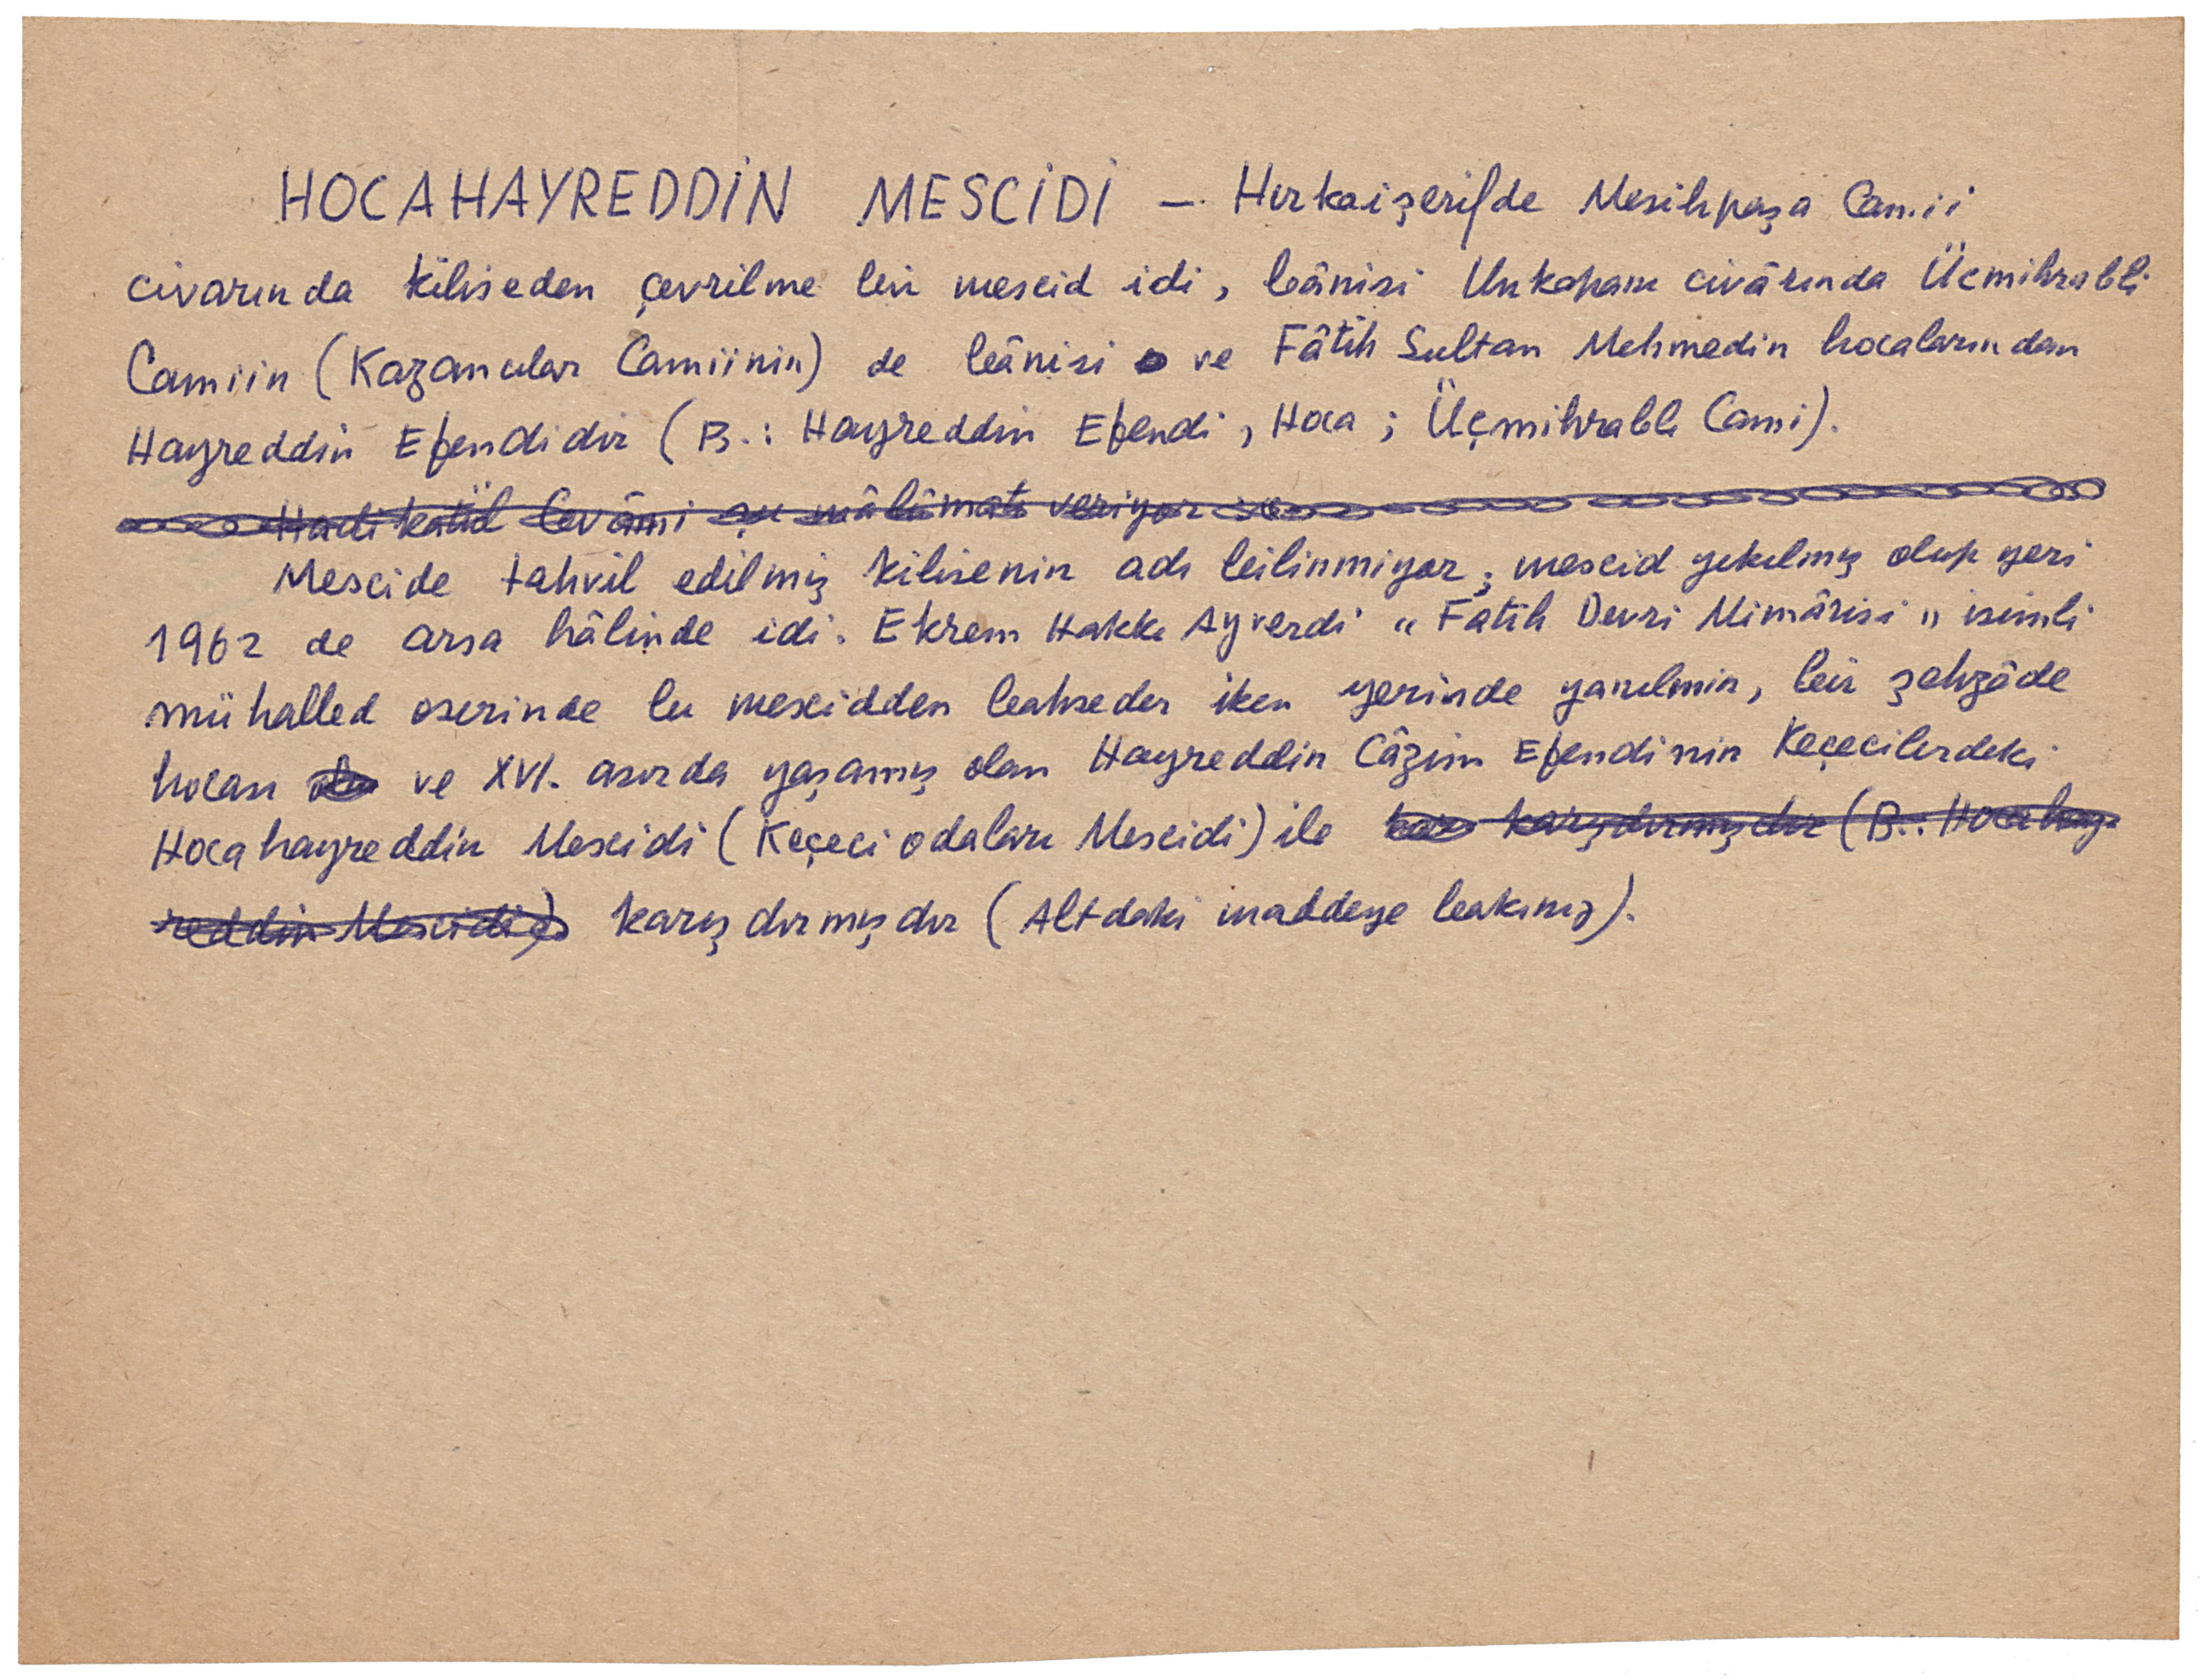 HOCAHAYREDDİN MESCİDİ — Hırkaişerifde Mesihpaşa Camii
civarında kiliseden çevrilme bir mescid idi, bânisi Unkapanı civârında Üçmihrablı
Camiin (Kazancılar Camiinin) de bânisi ve Fâtih Sultan Mehmedin hocalarından
Hayreddin Efendidir (B.: Hayreddin Efendi, Hoca; Üçmihrablı Cami).
Hadikatül Cevâmi şu mâlûmatı veriyor
Mescide tahvil edilmiş kilisenin adı bilinmiyor; mescid yıkılmış olup yeri
1962 de arsa hâlinde idi. Ekrem Hakkı Ayverdi "Fatih Devri Mimârisi" isimli
mühalled eserinde bu mescidden bahseder iken yerinde yanılmın, bir şehzâde
hocası ve XVI. asırda yaşamış olan Hayreddin Câzim Efendinin Keçecilerdeki
Hocahayreddin Mescidi (Keçeci odaları Mescidi) ile karışdırmışdır (B.: Hocahay-
reddin Mescidi) karışdırmışdır (Altdaki maddeye bakınız).